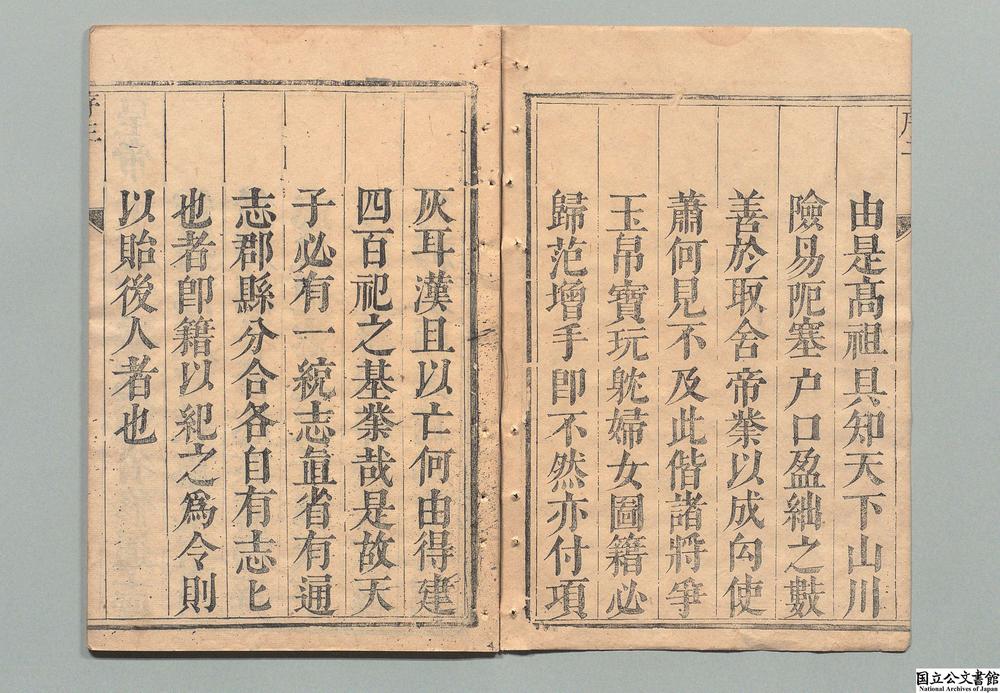 由是高祖具知天下山川
險易阨塞户口盈絀之數
善於取舍帝業以成向使
蕭何見不及此偕諸將爭
玉帛寶玩躭婦女圖籍必
歸范增手卽不然亦付項
灰耳漢且以亡何由得建
四百祀之基業哉是故天
子必有一統志直省有通
志郡縣分合各自有志匕
也者卽籍以紀之爲令則
以貽後人者也
序三
国立公文書館
National Archives of Japan